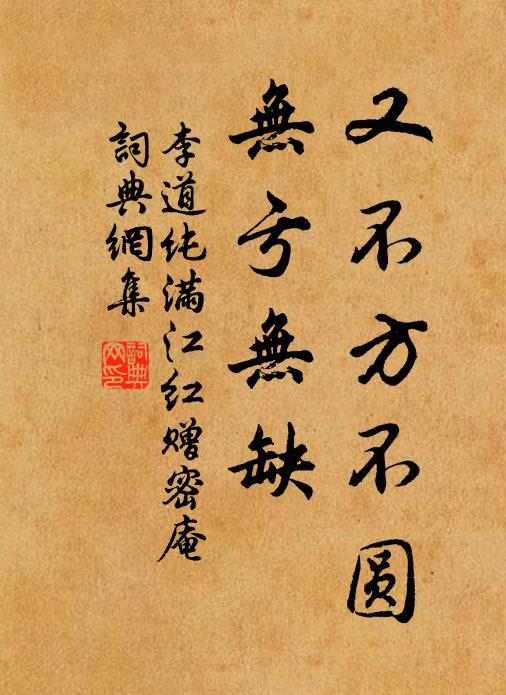 又不方不圆
無亏無缺
李道纯满江红赠密庵
詞典網集
詞典網印